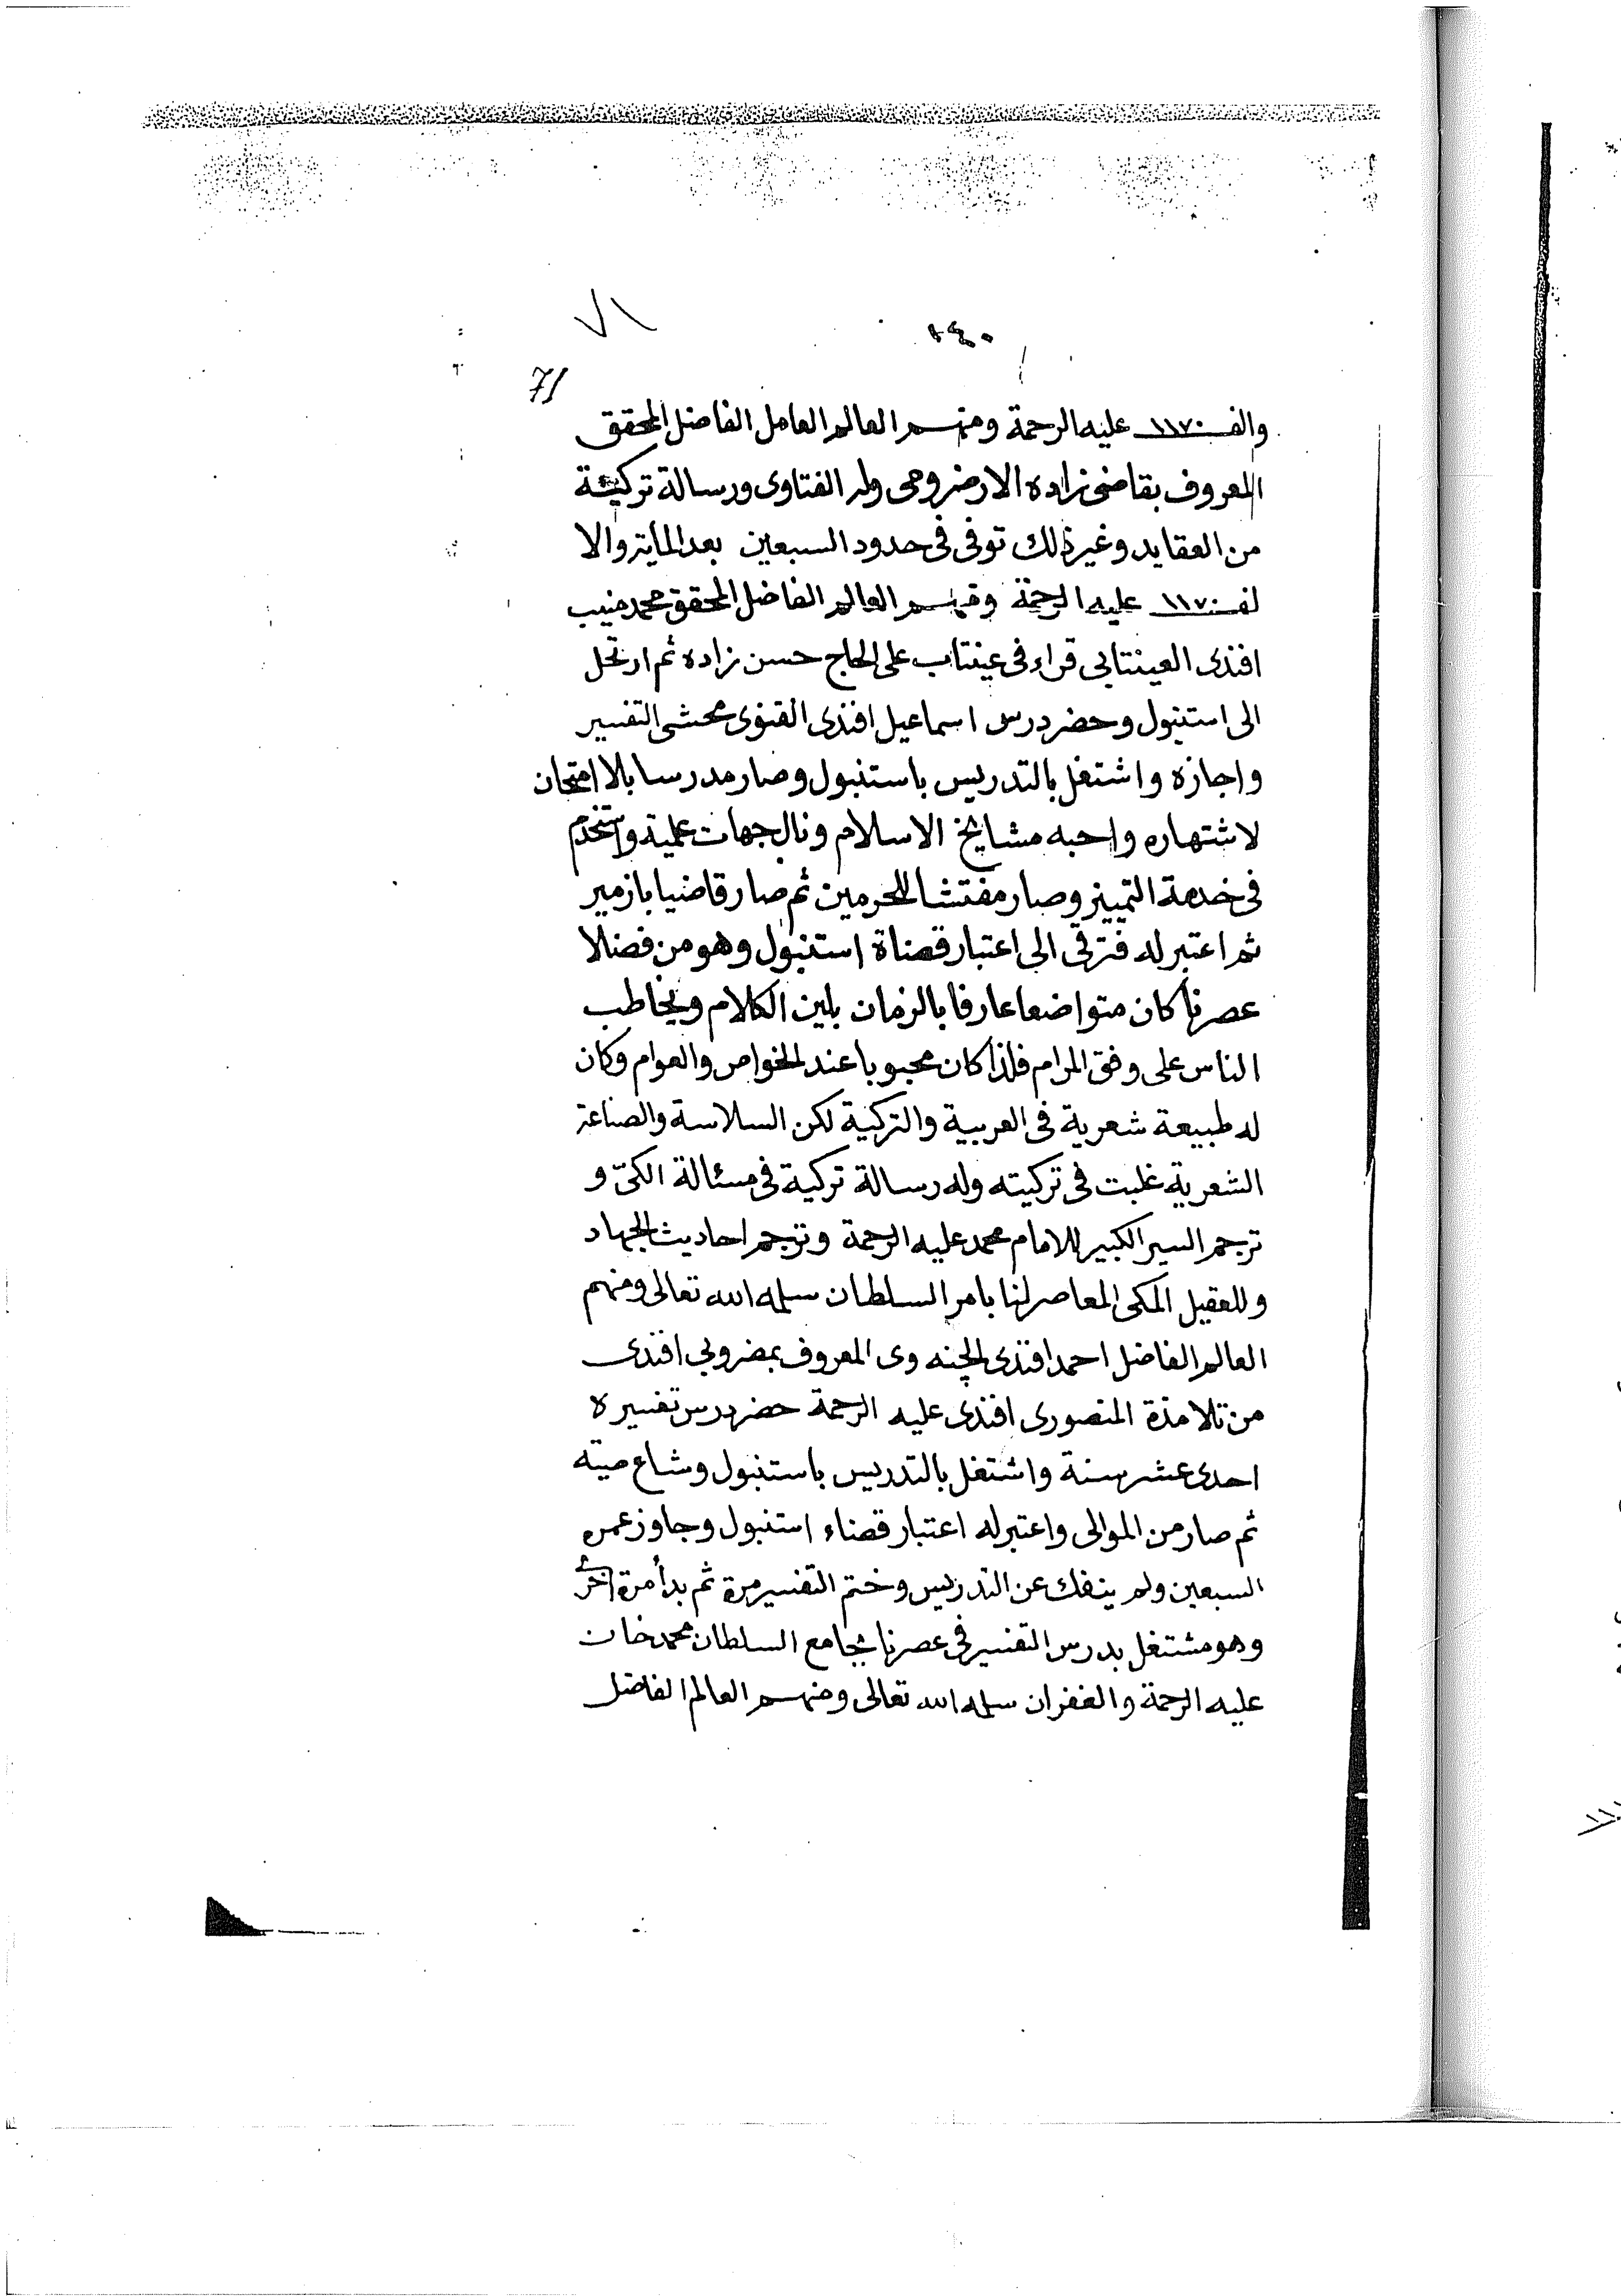 ٧١
١٤٠
71
والف ١١٧٠ عليه الرحمة ومنهم العالم العامل الفاضل المحقق
المعروف بقاضى زاده الارضرومى وله الفتاوى ورسالة تركيّة
من العقايد وغير ذلك توفى فى حدود السبعين بعد المأية والا
لف ١١٧٠ عليه الرحمة ومنهم العالم الفاضل المحقق محمد منيب
افندى العينتابى قراء فى عينتاب على الحاج حسن زاده ثم ارتحل
الى استنبول وحضر درس اسماعيل افندى القنوى محشى التفسير
واجازه واشتغل بالتدريس باستنبول وصار مدرسا بالا امتحان
لاشتهاره واحبه مشايخ الاسلام ونال جهات علمية واستخدم
فى خدمة التمييز وصار مفتشا للحرمين ثم صار قاضيا بازمير
ثم اعتبر له فترقى الى اعتبار قضاة استنبول وهو من فضلا
عصرنا كان متواضعا عارفا بالزمان بلين الكلام ويخاطب
الناس على وفق المرام فلذا كان محبوبا عند الخواص والعوام وكان
له طبيعة شعرية فى العربية والتركية لكن السلاسة والصناعة
الشعرية غلبت فى تركيته وله رسالة تركية فى مسئالة الكىّ و
ترجم السير الكبير للامام محمد عليه الرحمة وترجم احاديث الجهاد
وللعقيل المكى المعاصر لنا بامر السلطان سلمه الله تعالى ومنهم
العالم الفاضل احمد افندى الچنه وى المعروف بمضروبى افندى
من تلامذة المنصورى افندى عليه الرحمة حضر درس تفسيره
احدى عشر سنة واشتغل بالتدريس باستنبول وشاع صيته
ثم صار من الموالى واعتبر له اعتبار قضاء استنبول وجاوز عمره
السبعين ولم ينفك عن التدريس وختم التفسير مرة ثم بدأ مرة اخرى
وهو مشتغل بدرس التفسير فى عصرنا بجامع السلطان محمد خان
عليه الرحمة والغفران سلمه الله تعالى ومنهم العالم الفاضل